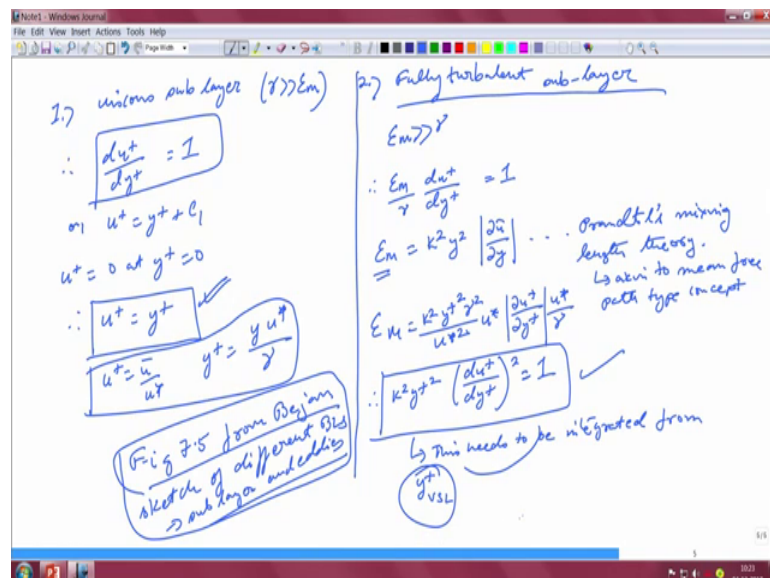 Note1 - Windows Journal
File Edit View Insert Actions Tools Help
Page Width
1.) viscous sub layer (γ>>Em)
∴ du+/dy+ = 1
or, u+ = y+ + C1
u+ = 0 at y+ = 0
∴ u+ = y+
u+ = ū/u* y+ = y u*/γ
Fig 7.5 from Bejan
sketch of different BLs
→ sub layer and eddies
2.) Fully turbulent sub-layer
Em>>γ
∴ Em/γ du+/dy+ = 1
Em = K²y² |∂ū/∂y| ... Prandtl's mixing
length theory.
↳ akin to mean free
path type concept
EM = K²y+²γ²/u*² u* |∂u+/∂y+| u*/γ
∴ K²y+² (du+/dy+)² = 1
↳ This needs to be integrated from
y+VSL
6/6
5
10:23